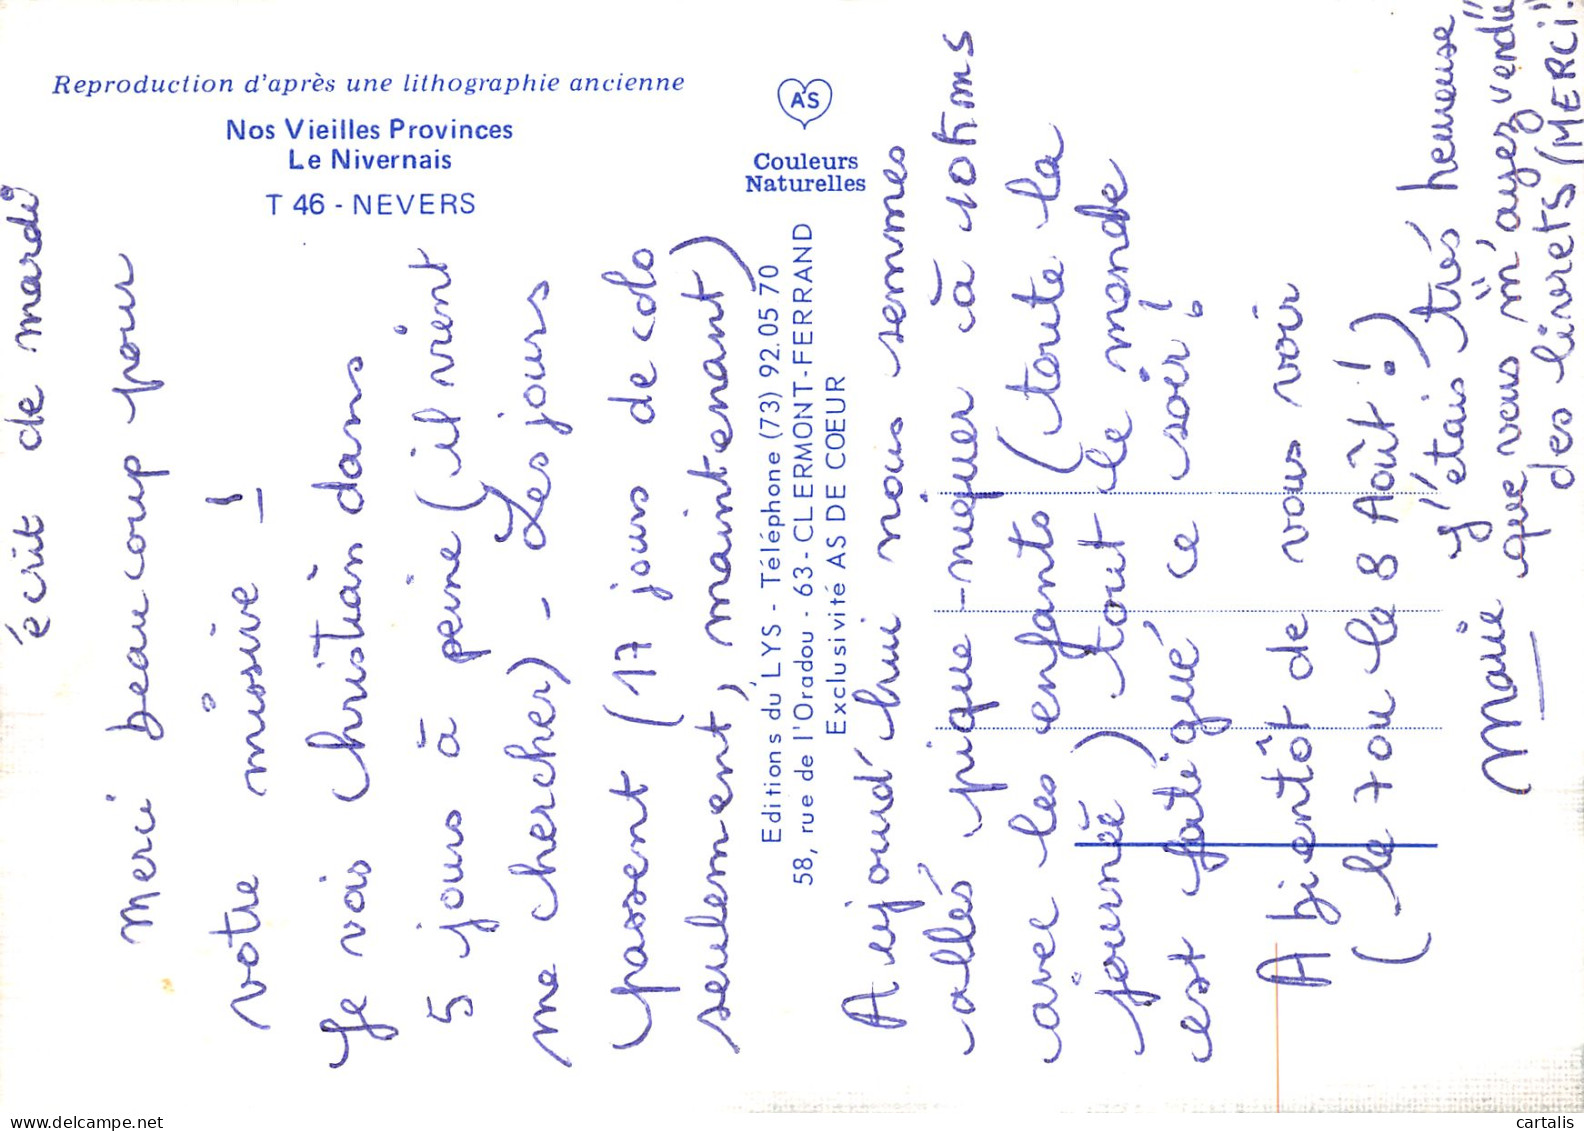 Reproduction d'après une lithographie ancienne
Nos Vieilles Provinces
Le Nivernais
T 46 - NEVERS
AS
Couleurs
Naturelles
Editions du LYS - Téléphone (73) 92.05 70
58, rue de l'Oradou - 63 - CLERMONT-FERRAND
Exclusivité AS DE COEUR
écrit de mardi
Merci beaucoup pour
votre missive !
Je vois christian dans
5 jours à peine (il vient
me chercher) - Les jours
passent (17 jours de colo
seulement, maintenant)
Aujourd'hui nous sommes
allés pique-niquer à 10kms
avec les enfants (toute la
journée) tout le monde
est fatigué ce soir !
A bientôt de vous voir
(le 7 ou le 8 Août !)
J'étais très heureuse
que vous m'ayez vendu
des livrets (MERCI!!
Marie
cartalis